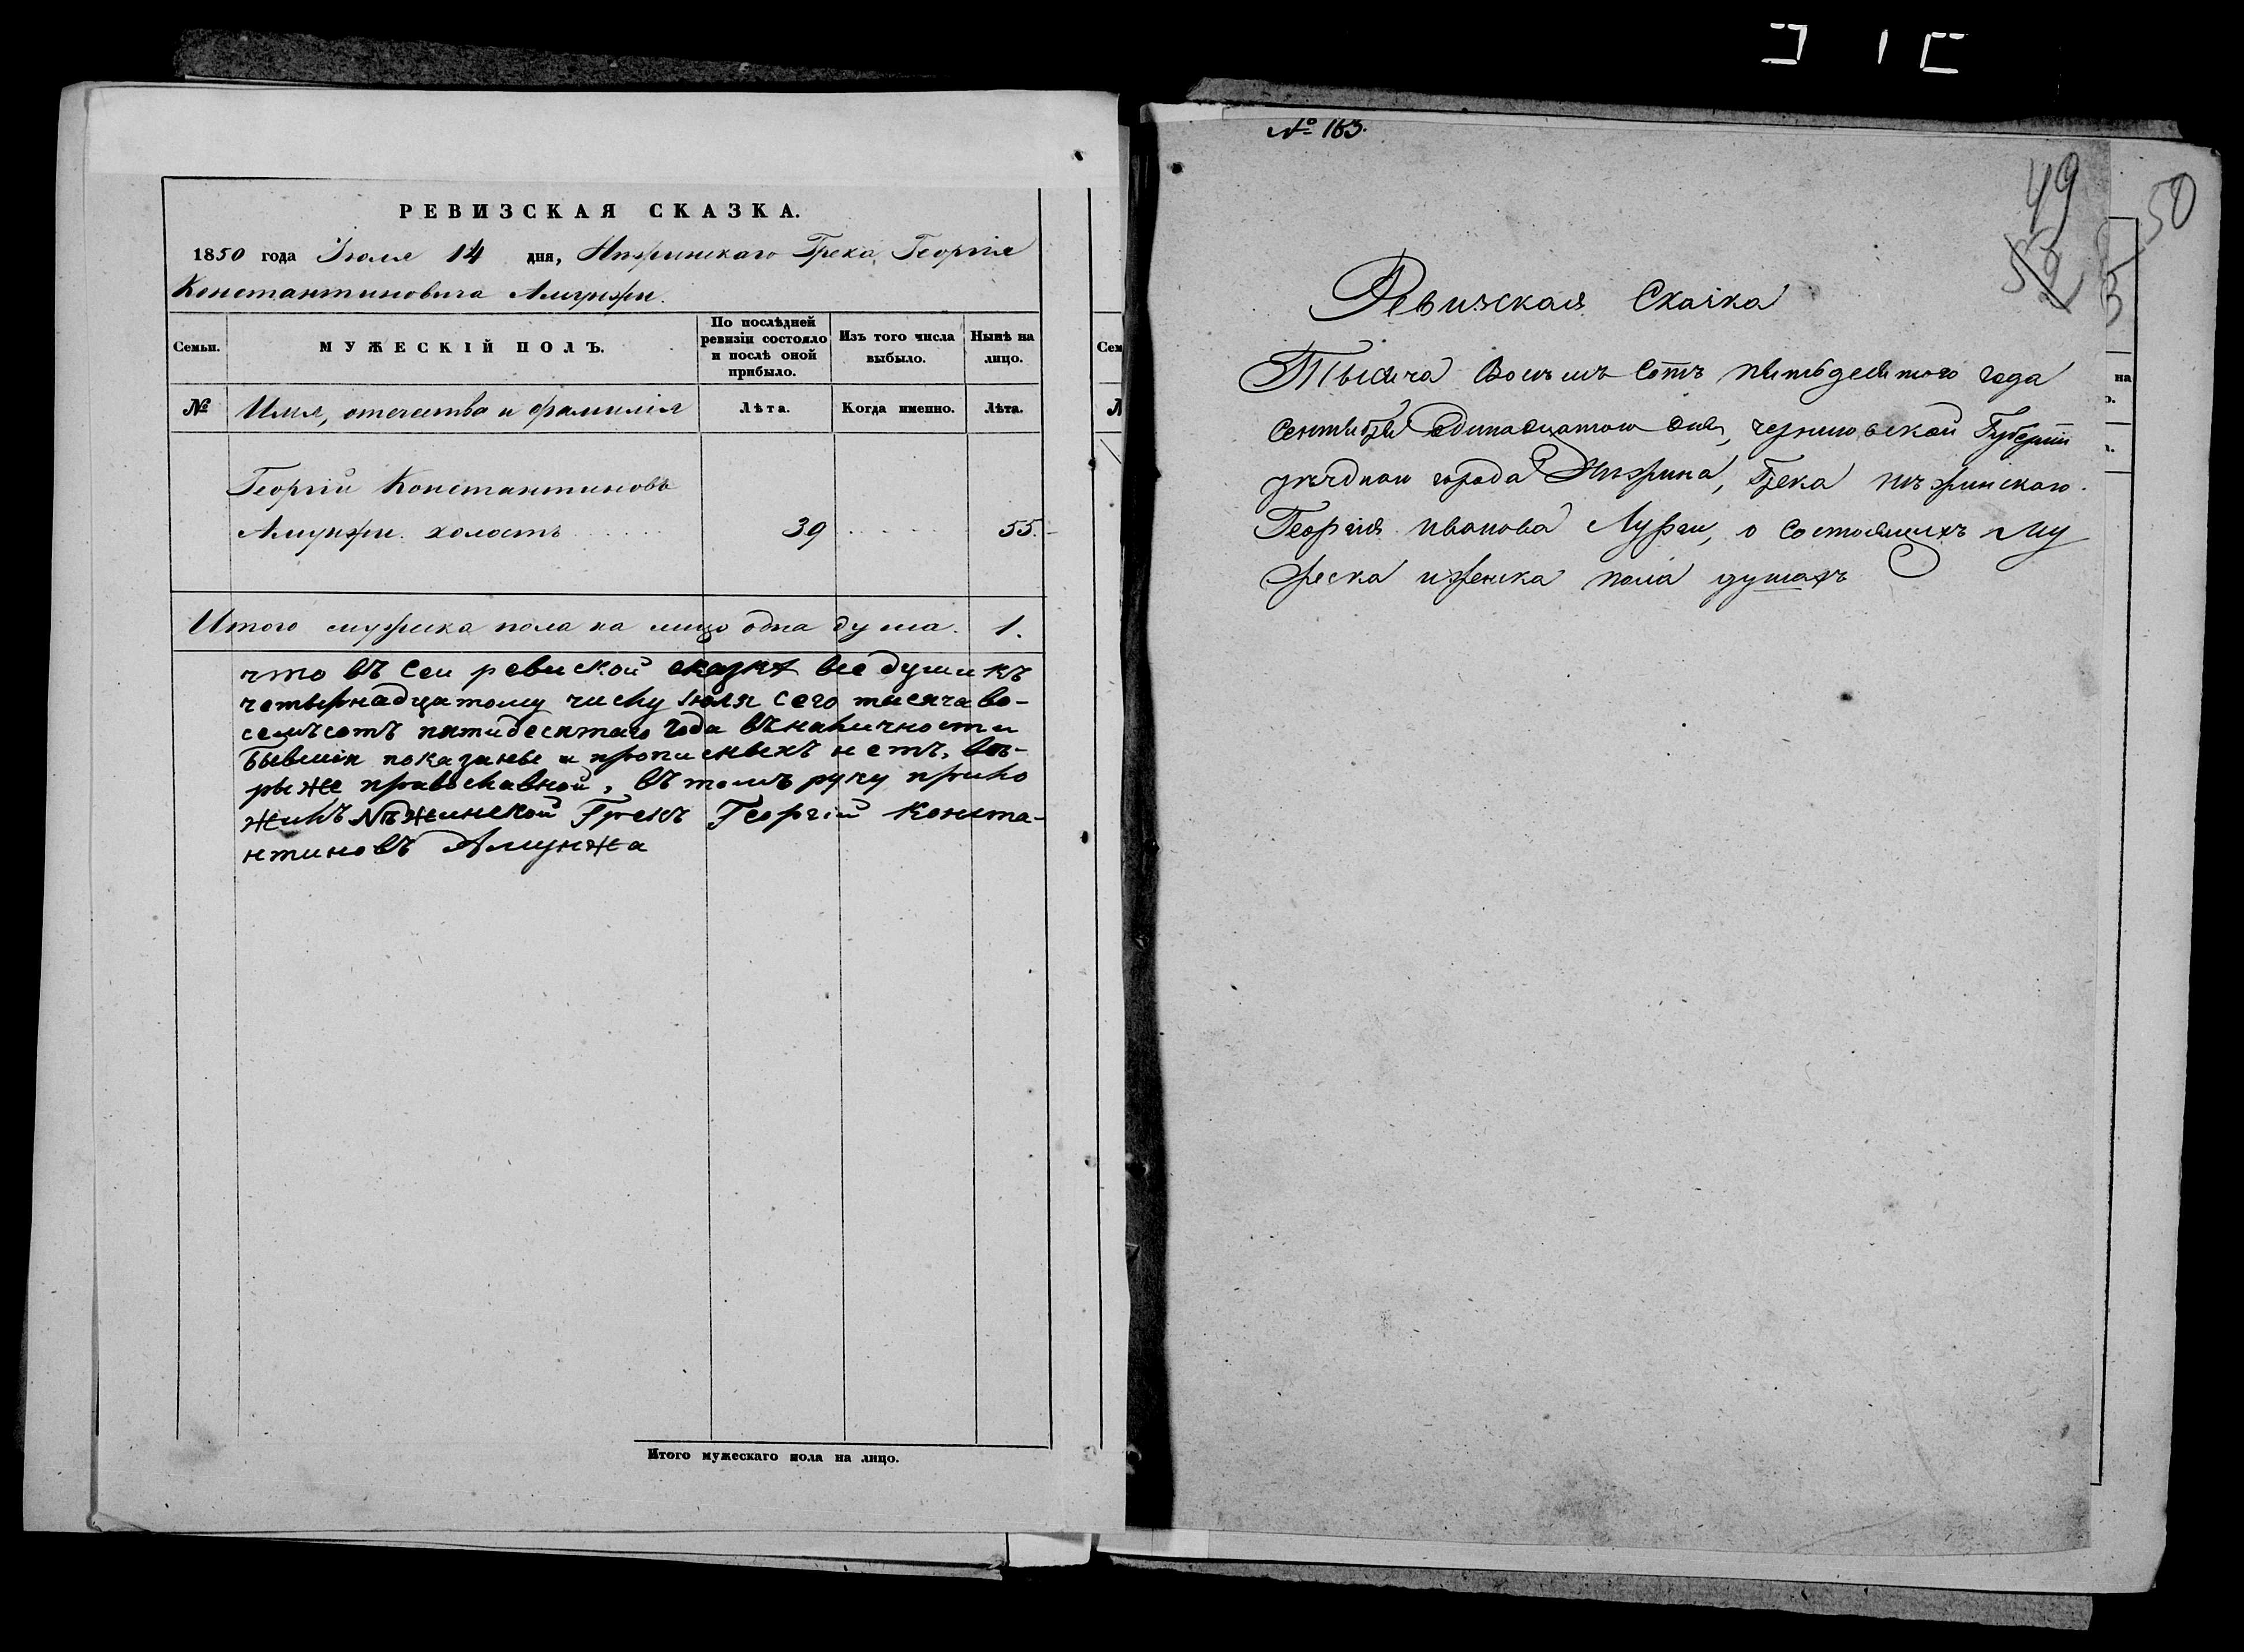 РЕВИЗСКАЯ СКАЗКА.
1850 года Іюля 14 дня, Нѣжинскаго Грека, Георгія
Константиновича Алунжи.
Семьи.
МУЖЕСКІЙ ПОЛЪ.
По послѣдней ревизіи состояло и послѣ оной прибыло.
Изъ того числа выбыло.
Нынѣ на лицо.
№ Имя, отечество и фамилія Лѣта. Когда именно. Лѣта.
Георгій Константиновъ
Алунжи. холостъ 39 55.
Итого мужеска пола на лицо одна душа. 1.
что въ сеи ревиской сказке все души къ
четырнадцатому числу июля сего тисяча во-
семъсотъ пятидесятаго года въналичности
бывшія показаные и прописныхъ нетъ. въ-
ры же православной, въ томъ руку прило
жилъ Нѣжинской Грекъ Георгій Конста-
нтиновъ Алунжа
Итого мужескаго пола на лицо.
№ 163.
49
50
Ревизская Сказка
Тысяча Восемъ Сотъ пятьдесятого года
Сентября Одинадцатого дня, черниговской Губерніи
уѣздного города Нѣжина, Грека нѣжинского.
Георгія иванова, о Состоящихъ му
жеска иженска пола душахъ